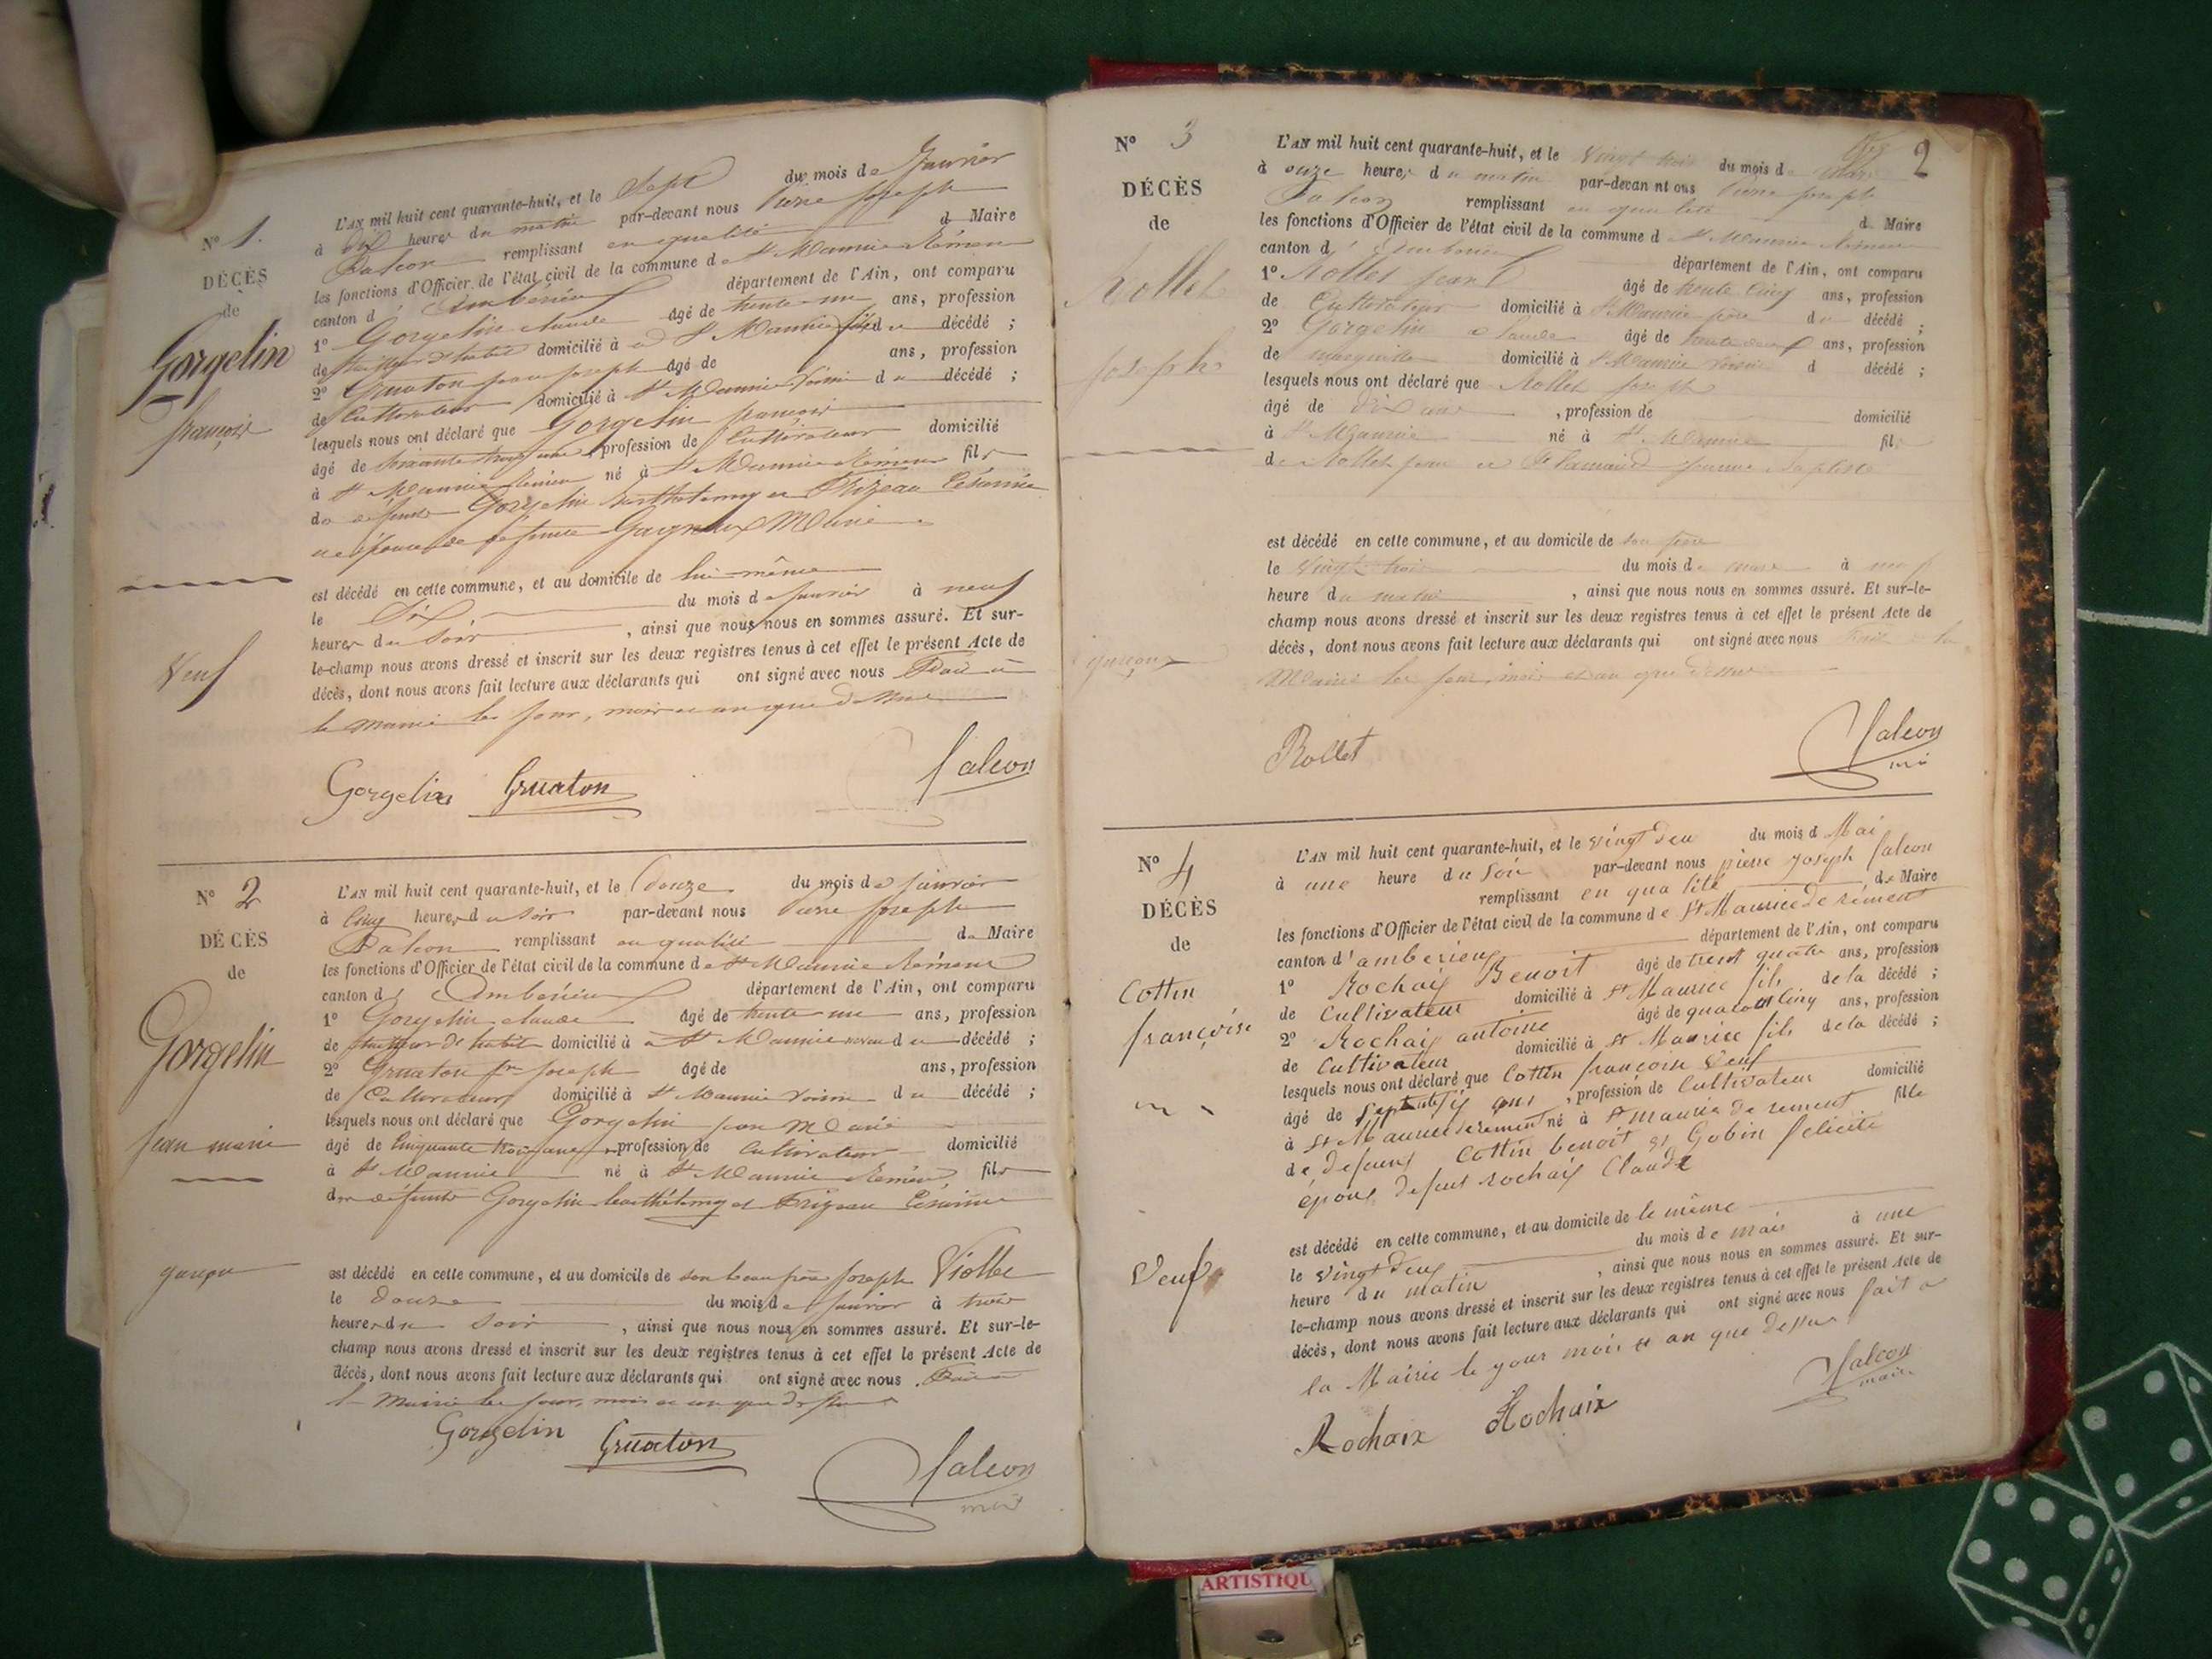 N° 1.
DÉCÈS
de
Gorgelin
françois
Veuf
L'AN mil huit cent quarante-huit, et le Sept du mois de Janvier
à dix heures du matin par-devant nous Pierre Joseph
Falcon remplissant en qualité de Maire
les fonctions d'Officier de l'état civil de la commune de St Maurice Rémens
canton d'Ambérieu département de l'Ain, ont comparu
1° Gorgelin claude âgé de trente-un ans, profession
de d'habit domicilié à St Maurice fils du décédé ;
2° Gruaton Joseph âgé de ans, profession
de Cultivateur domicilié à St Maurice Voisin du décédé ;
lesquels nous ont déclaré que Gorgelin françois
âgé de Soixante trois ans, profession de Cultivateur domicilié
à St Maurice Rémens né à St Maurice Rémens fils
de défunts Gorgelin Barthelemy et Césarine
de défunte Marie
est décédé en cette commune, et au domicile de lui-même
le Six du mois de Janvier à neuf
heures du Soir, ainsi que nous nous en sommes assuré. Et sur-
le-champ nous avons dressé et inscrit sur les deux registres tenus à cet effet le présent Acte de
décès, dont nous avons fait lecture aux déclarants qui ont signé avec nous Fait à
la mairie les jour, mois et an que dessus
Gorgelin Gruaton falcon
N° 2
DÉCÈS
de
Gorgelin
jean marie
garçon
L'AN mil huit cent quarante-huit, et le douze du mois de Janvier
à Cinq heures du Soir par-devant nous Pierre Joseph
Falcon remplissant en qualité de Maire
les fonctions d'Officier de l'état civil de la commune de St Maurice Rémens
canton d'Ambérieu département de l'Ain, ont comparu
1° Gorgelin claude âgé de trente-un ans, profession
de d'habit domicilié à St Maurice neveu du décédé ;
2° Gruaton Joseph âgé de ans, profession
de Cultivateur domicilié à St Maurice Voisin du décédé ;
lesquels nous ont déclaré que Gorgelin jean Marie
âgé de Cinquante trois ans, profession de Cultivateur domicilié
à St Maurice né à St Maurice Rémens fils
de défunts Gorgelin barthélemy et Césarine
est décédé en cette commune, et au domicile de son beau frère Joseph Viollet
le douze du mois de Janvier à trois
heures du Soir, ainsi que nous nous en sommes assuré. Et sur-le-
champ nous avons dressé et inscrit sur les deux registres tenus à cet effet le présent Acte de
décès, dont nous avons fait lecture aux déclarants qui ont signé avec nous. Fait à
la Mairie les jour, mois et an que dessus
Gorgelin Gruaton falcon
maire
2
N° 3
DÉCÈS
de
Rollet
joseph
garçon
L'AN mil huit cent quarante-huit, et le Vingt trois du mois de Mars
à onze heures du matin par-devant nous Pierre joseph
Falcon remplissant en qualité de Maire
les fonctions d'Officier de l'état civil de la commune de St Maurice Rémens
canton d'Ambérieu département de l'Ain, ont comparu
1° Rollet jean âgé de trente Cinq ans, profession
de Cultivateur domicilié à St Maurice père du décédé ;
2° Gorgelin Claude âgé de ans, profession
de domicilié à St Maurice Voisin d décédé ;
lesquels nous ont déclaré que Rollet joseph
âgé de Dix ans, profession de domicilié
à St Maurice né à St Maurice fils
de Rollet jean et jeanne Baptiste
est décédé en cette commune, et au domicile de son père
le Vingt trois du mois de mars à neuf
heure du matin, ainsi que nous nous en sommes assuré. Et sur-le-
champ nous avons dressé et inscrit sur les deux registres tenus à cet effet le présent Acte de
décès, dont nous avons fait lecture aux déclarants qui ont signé avec nous Fait à la
Mairie les jour, mois et an que dessus
Rollet falcon
N° 4
DÉCÈS
de
Cottin
françoise
Veuf
L'AN mil huit cent quarante-huit, et le vingt deu du mois d Mai
à une heure du Soir par-devant nous pierre joseph falcon
remplissant en qualité de Maire
les fonctions d'Officier de l'état civil de la commune de St Maurice de rément
canton d'ambérieux département de l'Ain, ont comparu
1° Rochaix Benoit âgé de trent quatre ans, profession
de Cultivateur domicilié à St Maurice fils de la décédé ;
2° Rochaix antoine âgé de quarant Cinq ans, profession
de Cultivateur domicilié à St Maurice fils de la décédé ;
lesquels nous ont déclaré que Cottin françoise Veuf
âgé de ans, profession de Cultivateur domicilié
à St Maurice de rement né à St Maurice de rement fille
de defeunt Cottin benoit et Gobin felicité
épous defeut rochaix Claude
est décédé en cette commune, et au domicile de le même
le vingt deux du mois de Mais à une
heure du matin, ainsi que nous nous en sommes assuré. Et sur-
le-champ nous avons dressé et inscrit sur les deux registres tenus à cet effet le présent Acte de
décès, dont nous avons fait lecture aux déclarants qui ont signé avec nous fait a
la Mairie le jour mois et an que dessus
Rochaix Rochaix falcon
maire
ARTISTIQU